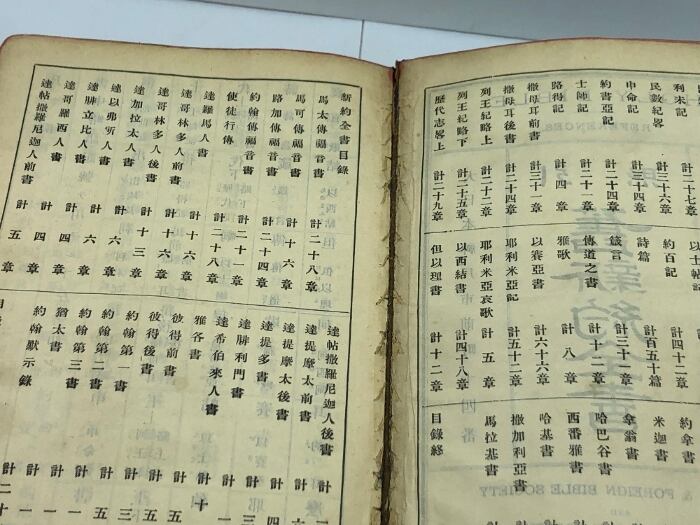 利未記 計二十七章
民數紀畧 計三十六章
申命記 計三十四章
約書亞記 計二十四章
士師記 計二十一章
路得記 計四章
撒母耳前書 計三十一章
撒母耳後書 計二十四章
列王紀略上 計二十二章
列王紀略下 計二十五章
歷代志畧上 計二十九章
以士帖
約百記 計四十二章
詩篇 計百五十篇
箴言 計三十一章
傳道之書 計十二章
雅歌 計八章
以賽亞書 計六十六章
耶利米亞記 計五十二章
耶利米亞哀歌 計五章
以西結書 計四十八章
但以理書 計十二章
約拿書
米迦書
拿翁書
哈巴谷書
西番雅書
哈基書
撒加利亞書
馬拉基書
目錄終
新約全書目錄
馬太傳福音書 計二十八章
馬可傳福音書 計十六章
路加傳福音書 計二十四章
約翰傳福音書 計二十一章
使徒行傳 計二十八章
達羅馬人書 計十六章
達哥林多人前書 計十六章
達哥林多人後書 計十三章
達加拉太人書 計六章
達以弗所人書 計六章
達腓立比人書 計四章
達哥羅西人書 計四章
達帖撒羅尼迦人前書 計五章
達帖撒羅尼迦人後書 計
達提摩太前書 計
達提摩太後書 計
達提多書 計
達腓利門書 計
達希伯來人書 計十
雅各書 計五
彼得前書 計五
彼得後書 計三
約翰第一書 計五
約翰第二書 計一
約翰第三書 計一
猶太書 計一
約翰默示錄 計二十